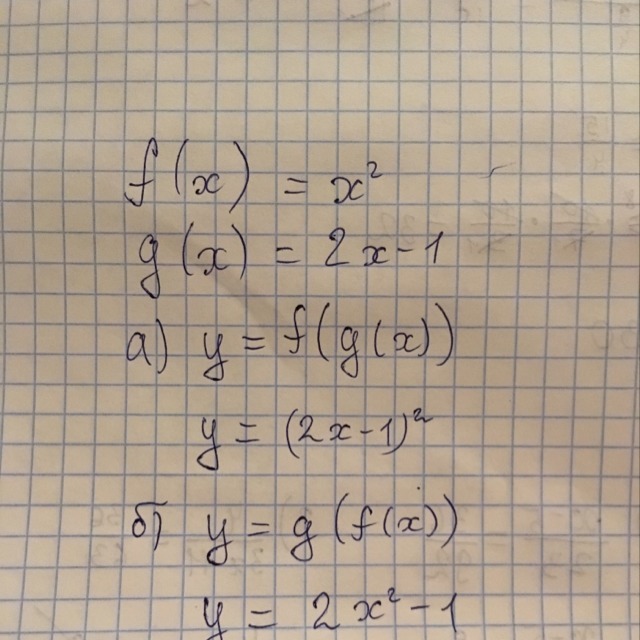 f(x) = x²
g(x) = 2x-1
а) y = f(g(x))
y = (2x-1)²
б) y = g(f(x))
y = 2x²-1